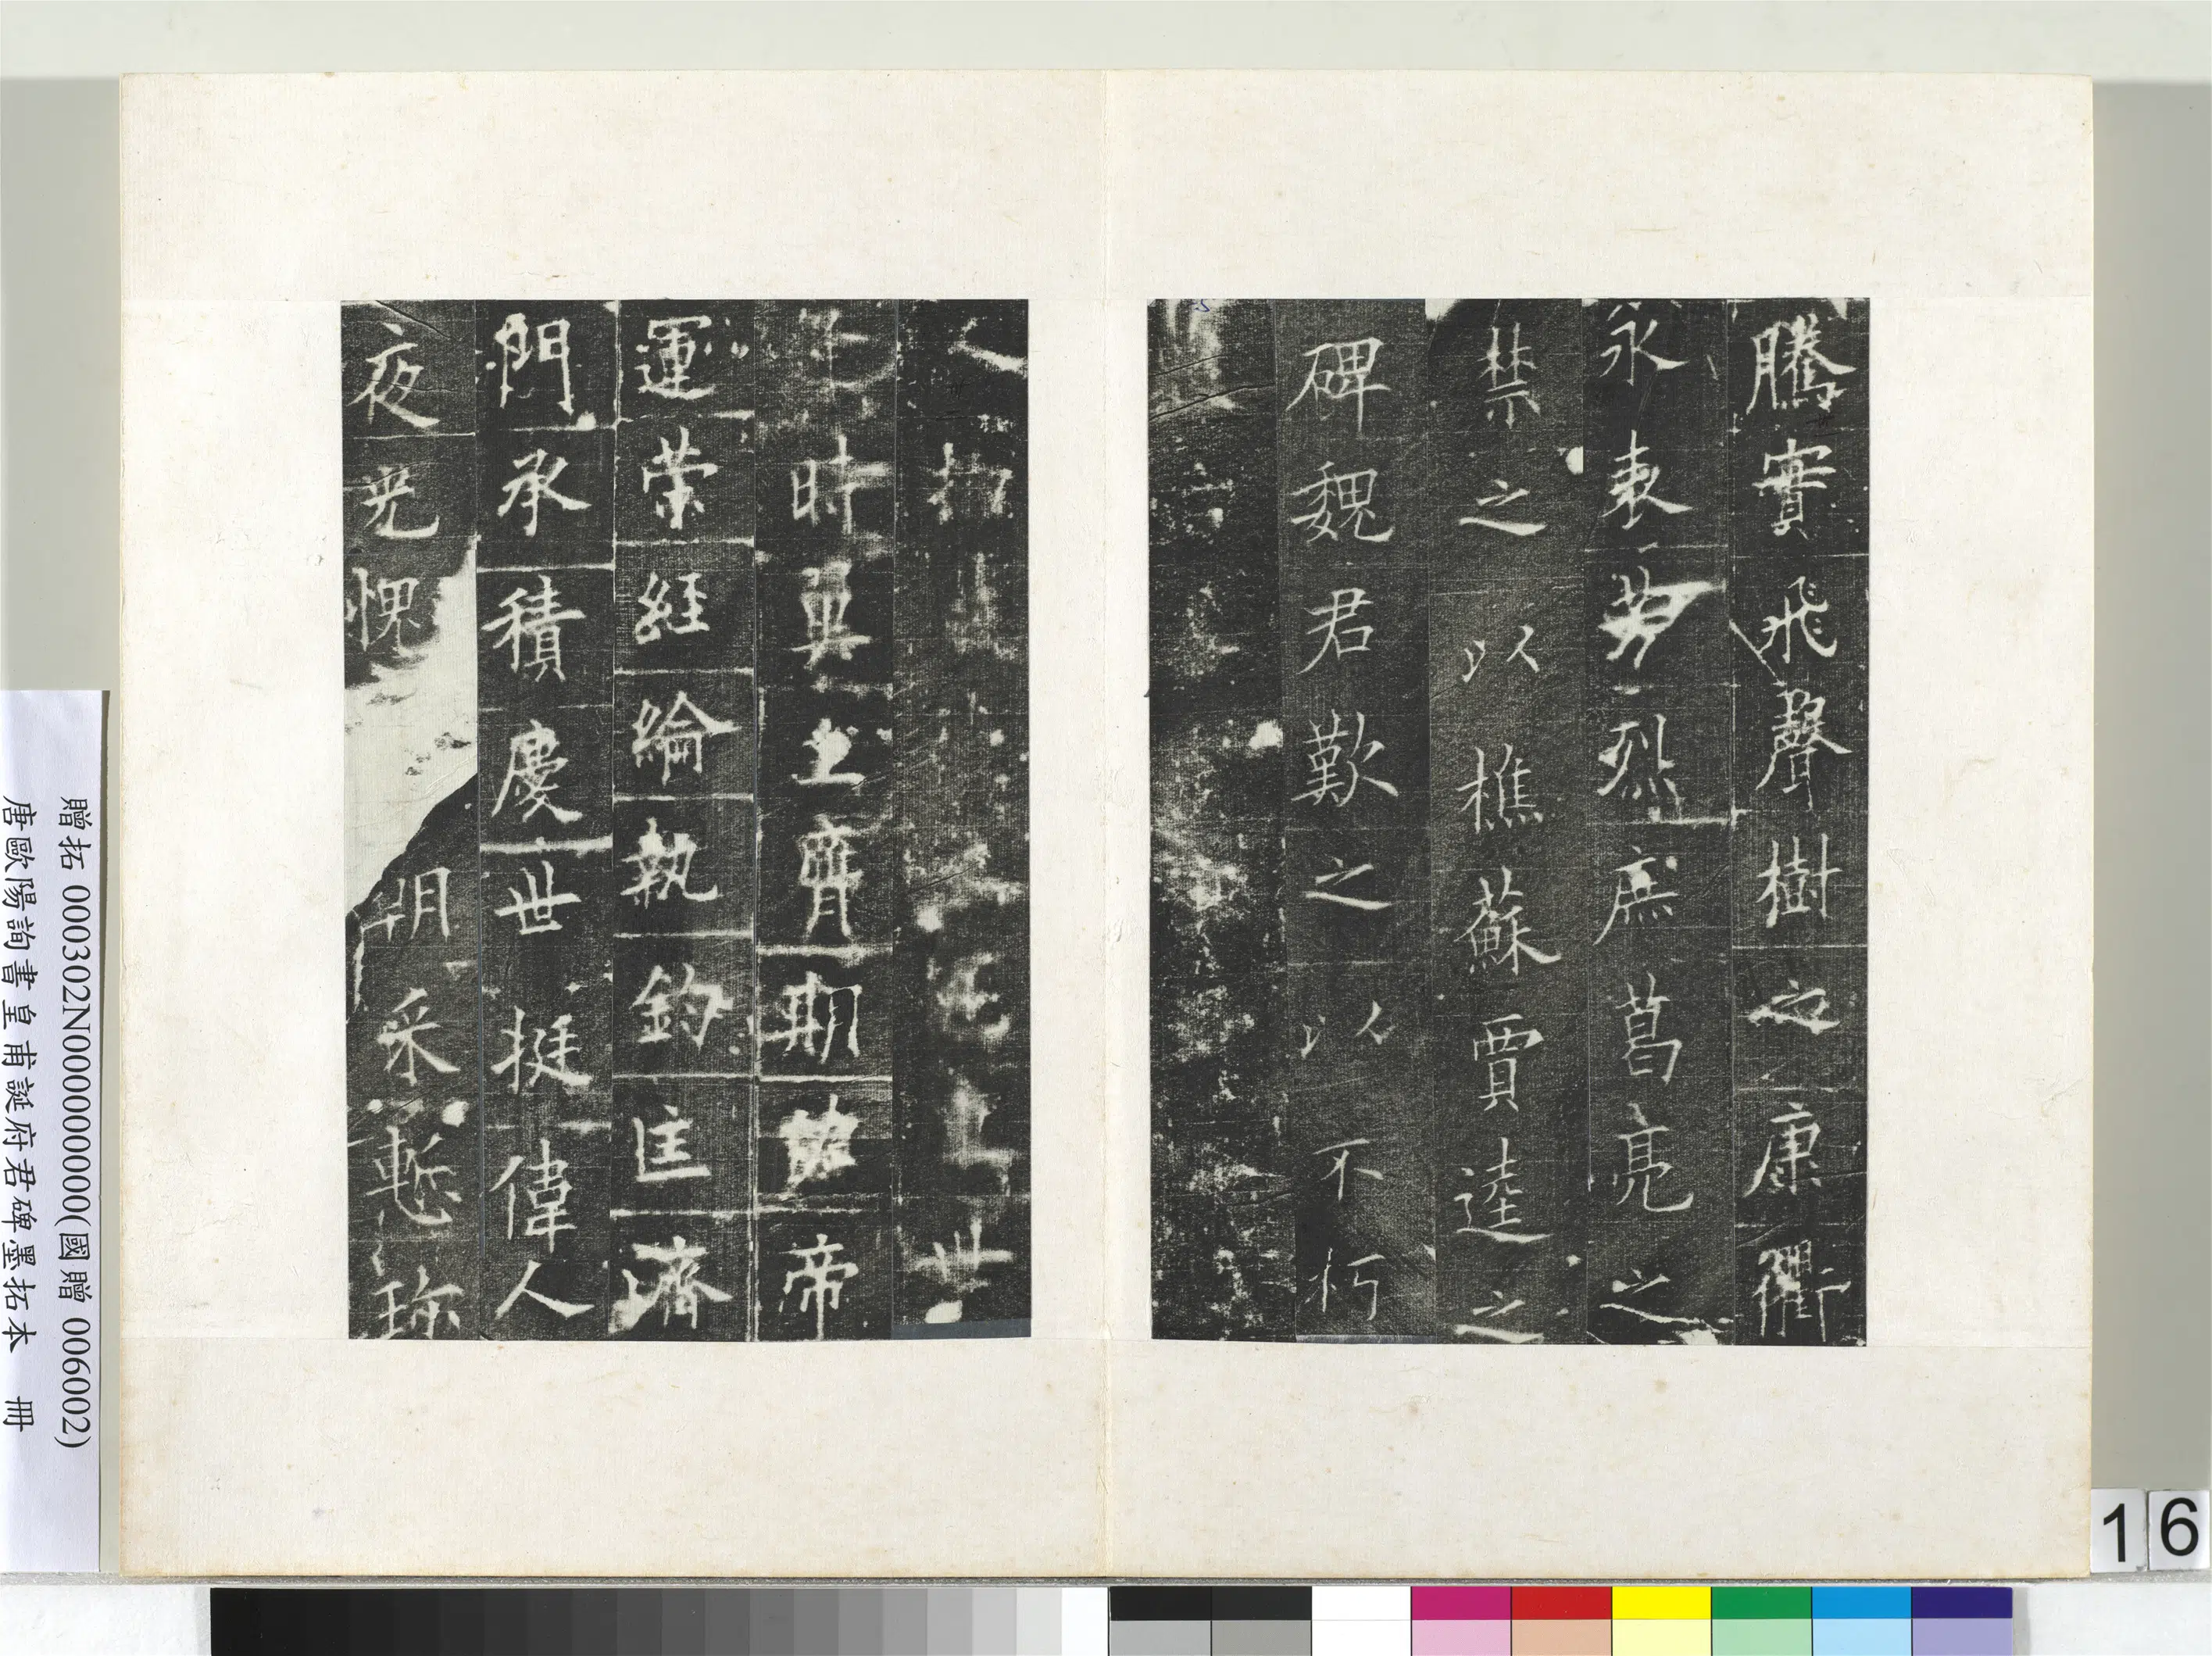 騰實飛聲樹之康衢
永表芳烈庶葛亮之
禁之以樵蘇賈逵之
碑魏君歎之以不朽
物世
時翼主膺期帝
運策經綸執鈞匡濟
門承積慶世挺偉人
夜光愧朝采慙珎
贈拓 000302N000000000(國贈 006002)
唐歐陽詢書皇甫誕府君碑墨拓本 冊
16